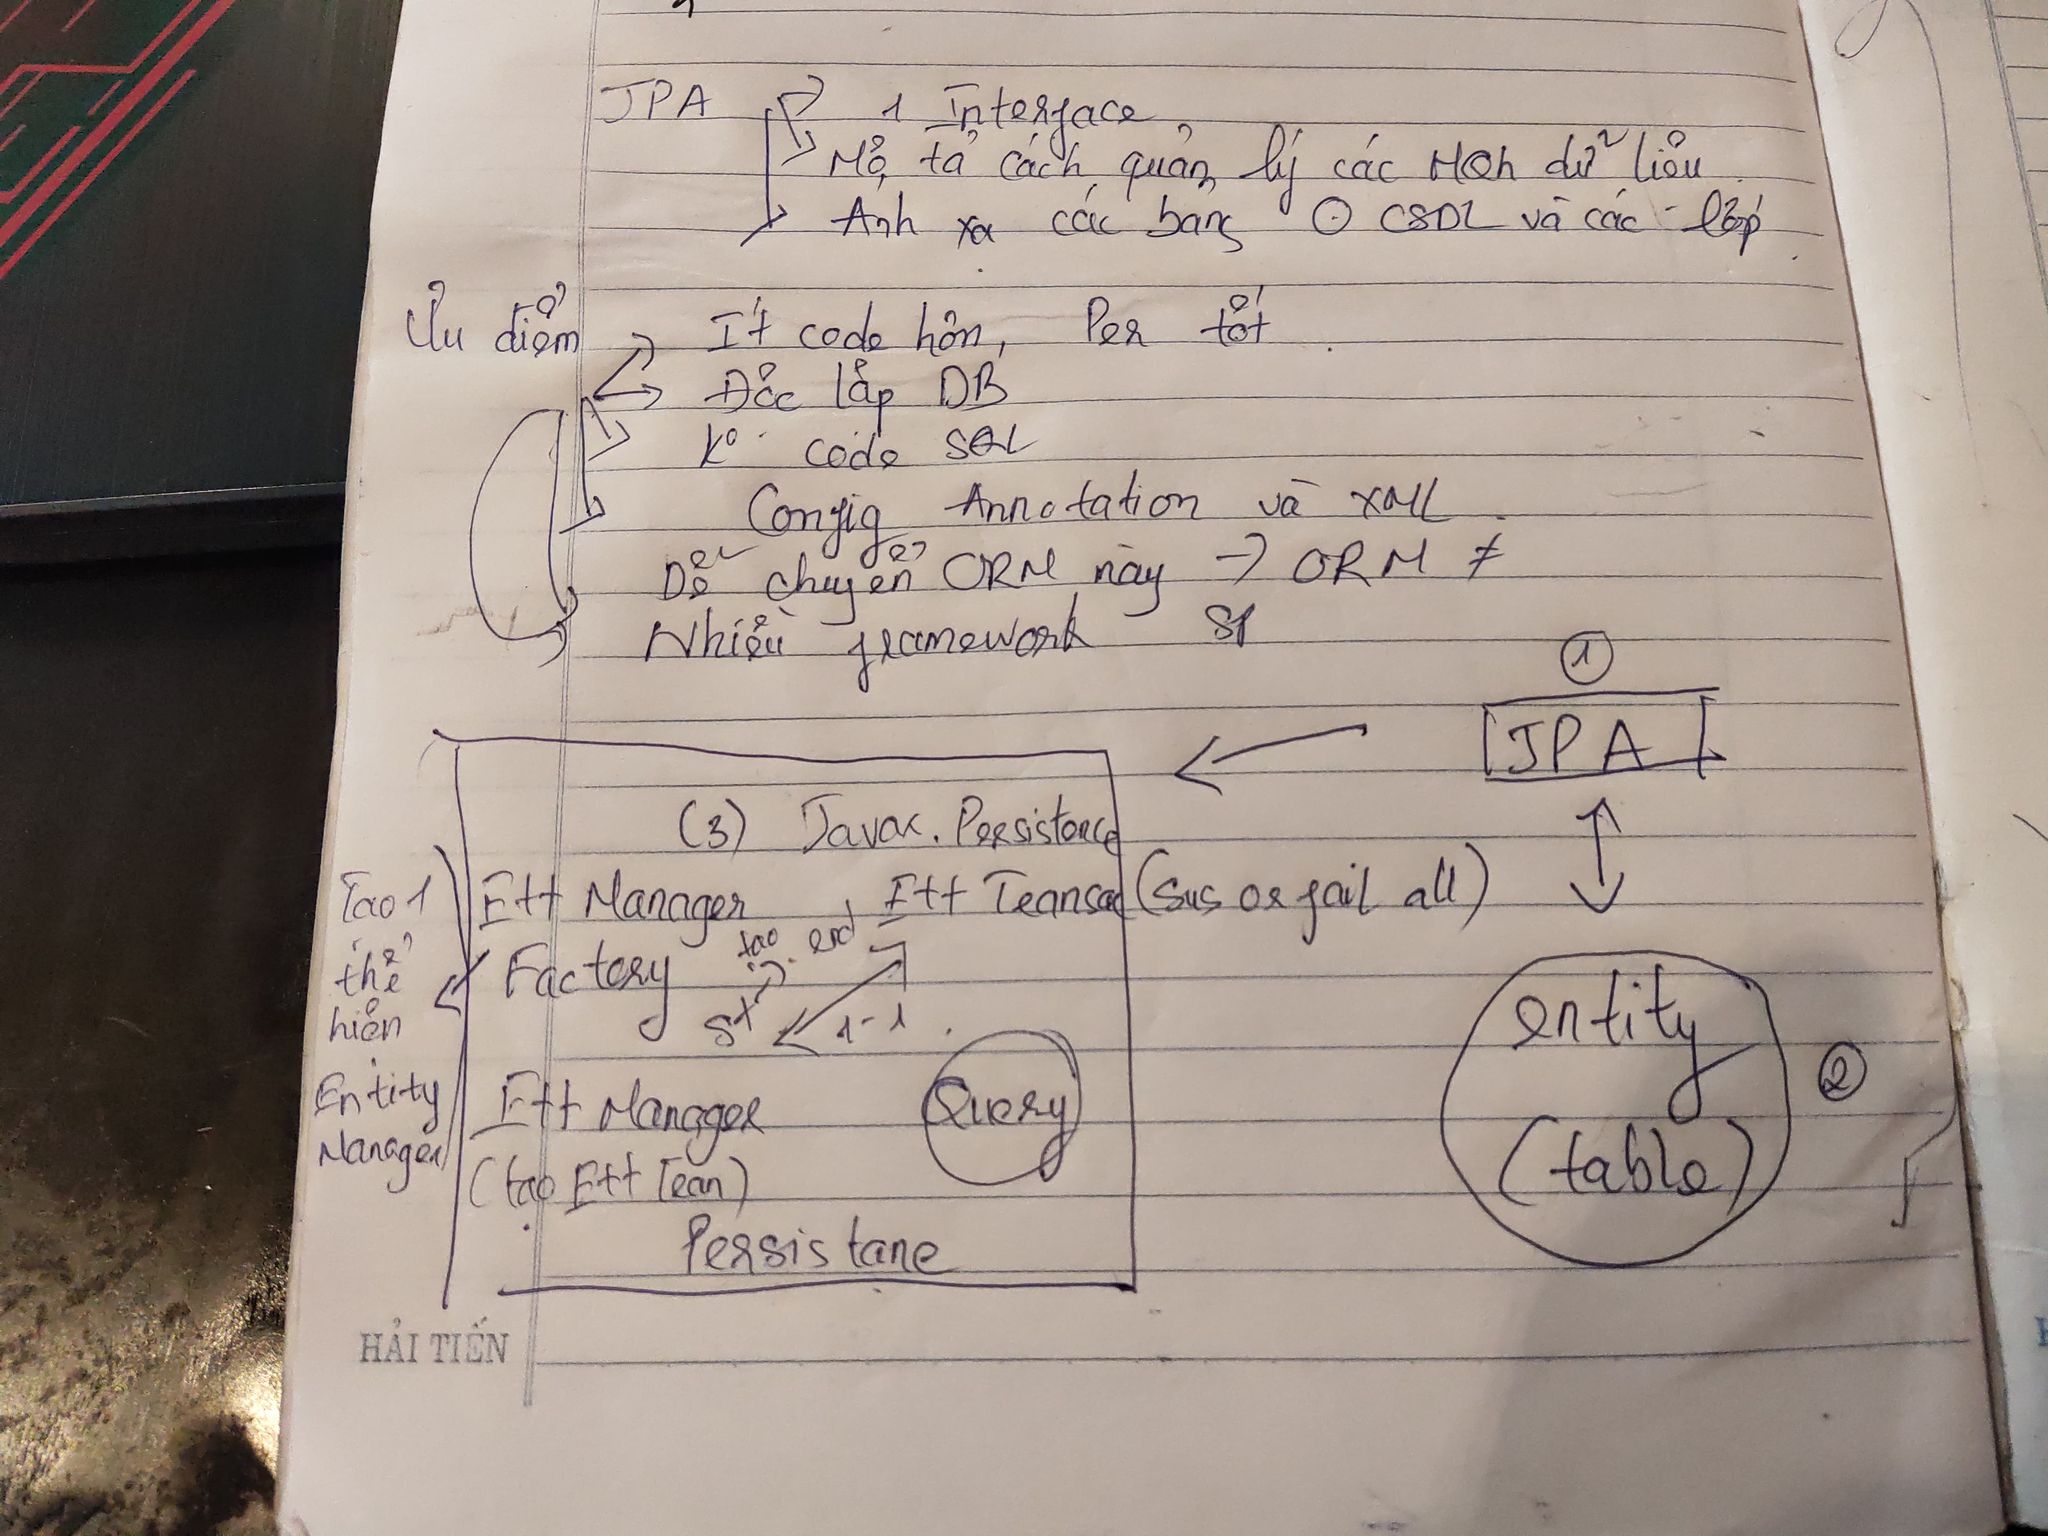 JPA 1 Interface
Mô tả cách quản lý các MQh dữ liệu
Ánh xạ các bảng CSDL và các lớp
Ưu điểm Ít code hơn, Per tốt
Độc lập DB
K° code SQL
Config Annotation và XML
Dễ chuyển ORM này → ORM ≠
Nhiều framework
①
JPA
(3) Javax. Persistence
Ett Manager, Ett Transac (Sus or fail all)
Factory
tạo end
St
1-1
Tạo 1
thể
hiện
Entity
Manager
Ett Manager
(tạo Ett Tran)
Query
Persistane
entity
(table)
②
HẢI TIẾN